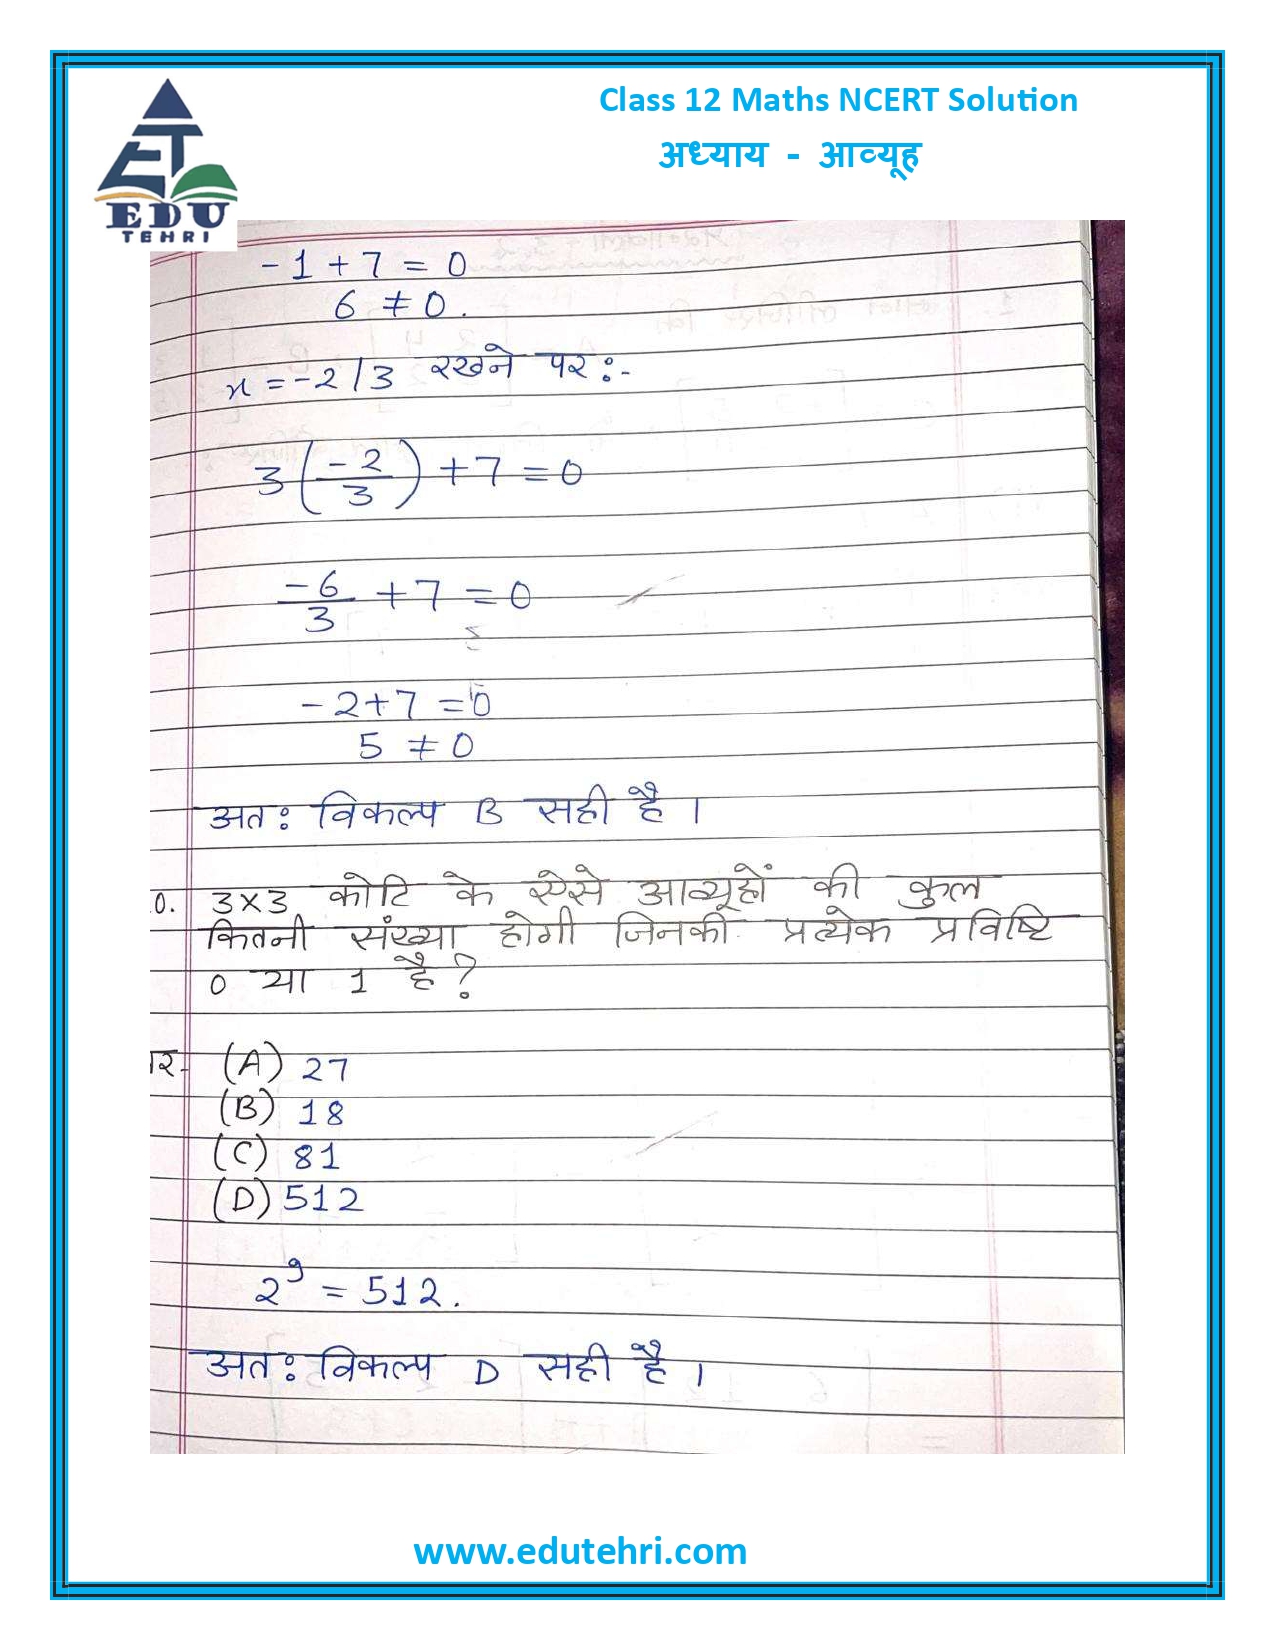 Class 12 Maths NCERT Solution
अध्याय - आव्यूह
EDU
TEHRI
-1 + 7 = 0
6 ≠ 0.
x = -2/3 रखने पर :-
3(-2/3) + 7 = 0
-6/3 + 7 = 0
-2 + 7 = 0
5 ≠ 0
अतः विकल्प B सही है ।
0. 3×3 कोटि के ऐसे आव्यूहों की कुल
कितनी संख्या होगी जिनकी प्रत्येक प्रविष्टि
0 या 1 है ?
(A) 27
(B) 18
(C) 81
(D) 512
2⁹ = 512.
अतः विकल्प D सही है ।
www.edutehri.com